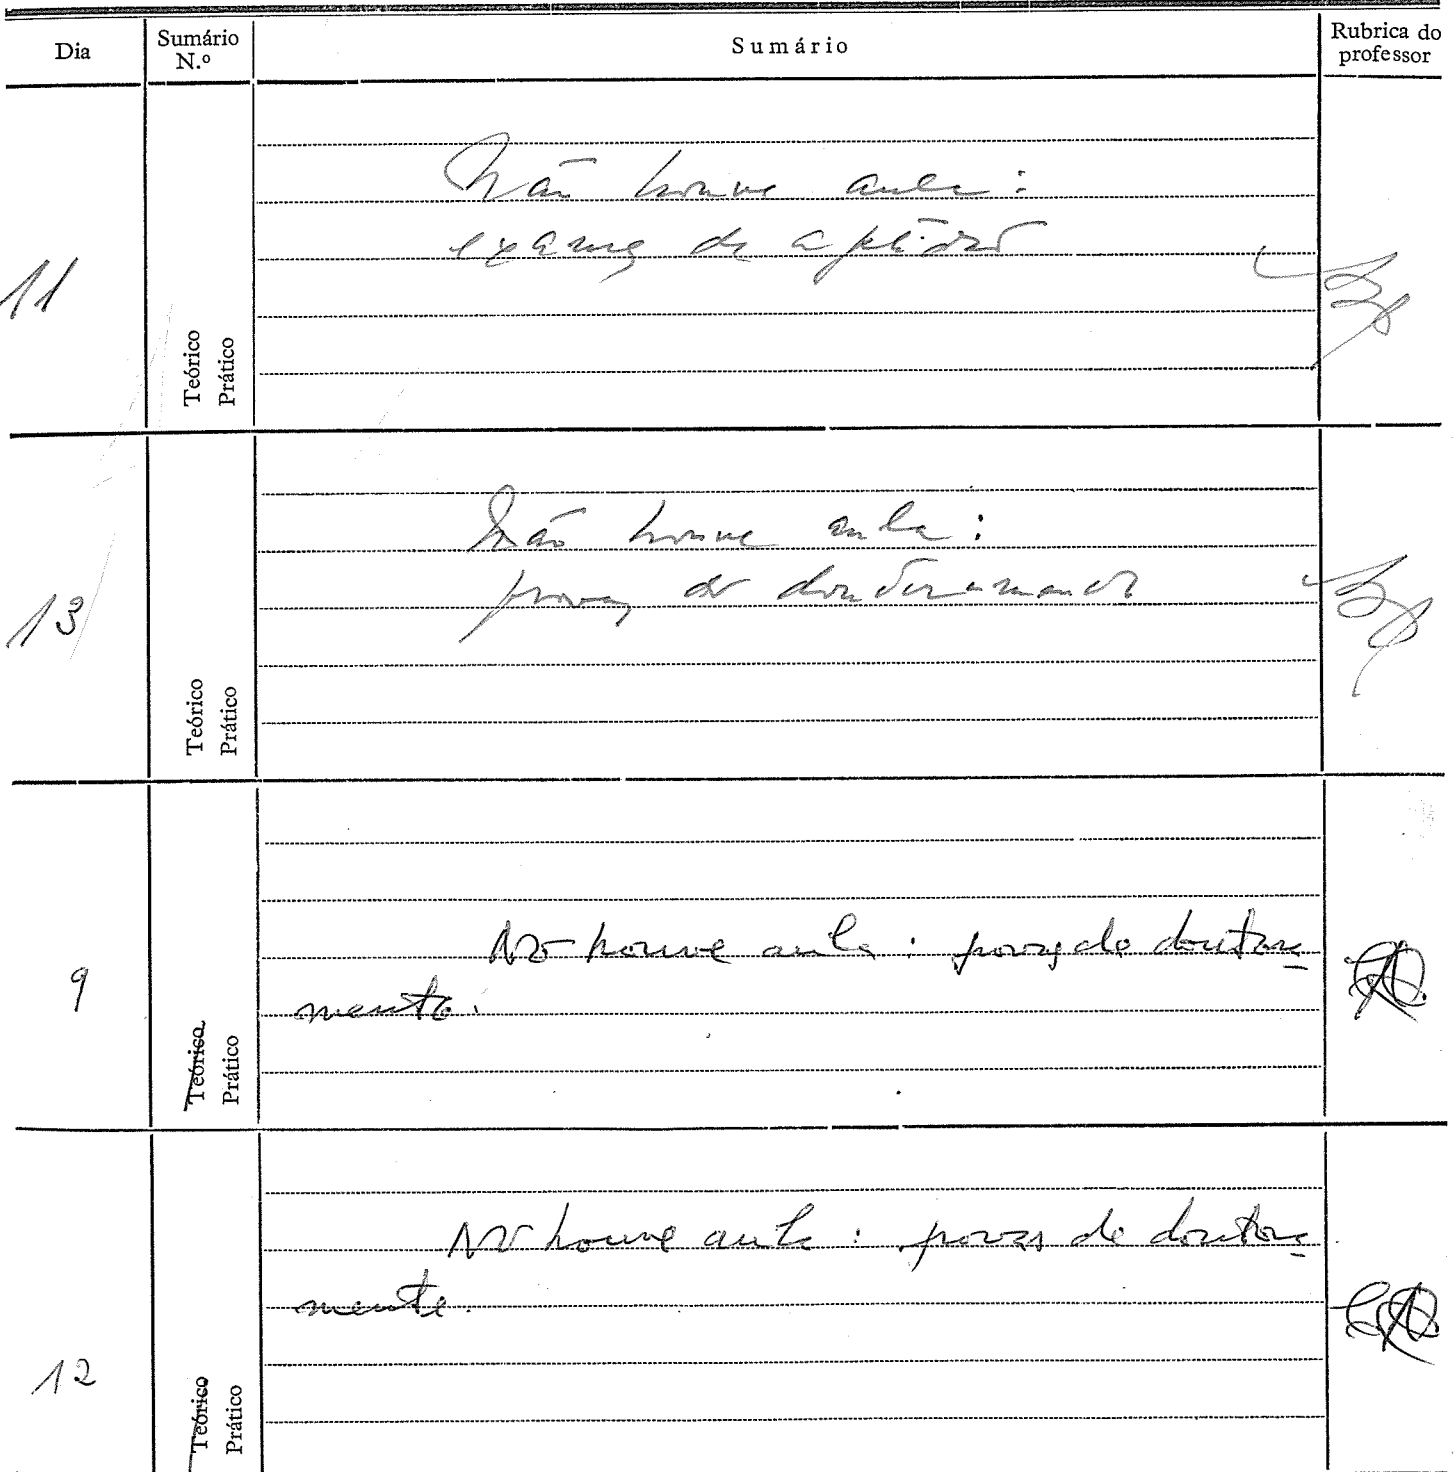 Dia
Sumário N.º
Sumário
Rubrica do professor
11
Teórico
Prático
Não houve aula :
exames de aptidão
13
Teórico
Prático
Não houve aula :
provas de doutoramento
9
Teórico
Prático
Não houve aula : provas de doutora
mento.
12
Teórico
Prático
Não houve aula : provas de doutora
mento.